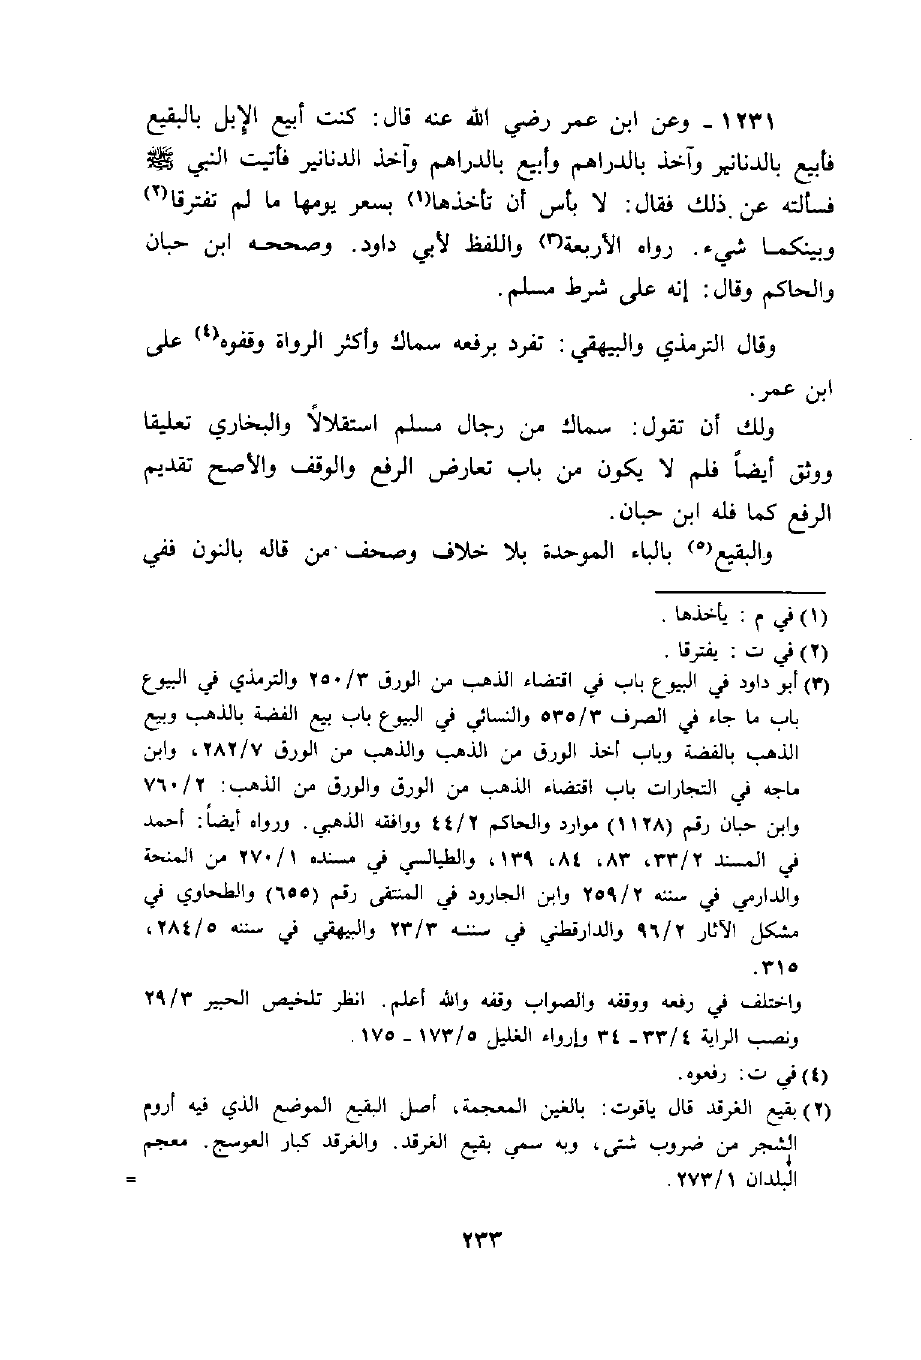 ١٢٣١ ـ وعن ابن عمر رضي الله عنه قال: كنت أبيع الإبل بالبقيع
فأبيع بالدنانير وآخذ بالدراهم وأبيع بالدراهم وآخذ الدنانير فأتيت النبي ﷺ
فسألته عن ذلك فقال: لا بأس أن تأخذها(١) بسعر يومها ما لم تفترقا(٢)
وبينكما شيء. رواه الأربعة(٣) واللفظ لأبي داود. وصححه ابن حبان
والحاكم وقال: إنه على شرط مسلم.
وقال الترمذي والبيهقي: تفرد برفعه سماك وأكثر الرواة وقفوه(٤) على
ابن عمر.
ولك أن تقول: سماك من رجال مسلم استقلالاً والبخاري تعليقا
ووثق أيضاً فلم لا يكون من باب تعارض الرفع والوقف والأصح تقديم
الرفع كما فله ابن حبان.
والبقيع(٥) بالباء الموحدة بلا خلاف وصحف من قاله بالنون ففي
(١) في م : يأخذها .
(٢) في ت : يفترقا .
(٣) أبو داود في البيوع باب في اقتضاء الذهب من الورق ٢٥٠/٣ والترمذي في البيوع
باب ما جاء في الصرف ٥٣٥/٣ والنسائي في البيوع باب بيع الفضة بالذهب وبيع
الذهب بالفضة وباب أخذ الورق من الذهب والذهب من الورق ٢٨٢/٧، وابن
ماجه في التجارات باب اقتضاء الذهب من الورق والورق من الذهب: ٧٦٠/٢
وابن حبان رقم (١١٢٨) موارد والحاكم ٤٤/٢ ووافقه الذهبي. ورواه أيضاً: أحمد
في المسند ٣٣/٢، ٨٣، ٨٤، ١٣٩، والطيالسي في مسنده ٢٧٠/١ من المنحة
والدارمي في سننه ٢٥٩/٢ وابن الجارود في المنتفى رقم (٦٥٥) والطحاوي في
مشكل الآثار ٩٦/٢ والدارقطني في سننه ٢٣/٣ والبيهقي في سننه ٢٨٤/٥،
٣١٥.
واختلف في رفعه ووقفه والصواب وقفه والله أعلم. انظر تلخيص الحبير ٢٩/٣
ونصب الراية ٣٣/٤ـ ٣٤ وإرواء الغليل ١٧٣/٥ ـ ١٧٥ .
(٤) في ت: رفعوه.
(٢) بقيع الغرقد قال ياقوت: بالغين المعجمة، أصل البقيع الموضع الذي فيه أروم
الشجر من ضروب شتى، وبه سمي بقيع الغرقد. والغرقد كبار العوسج. معجم
البلدان ٢٧٣/١ . =
٢٣٣